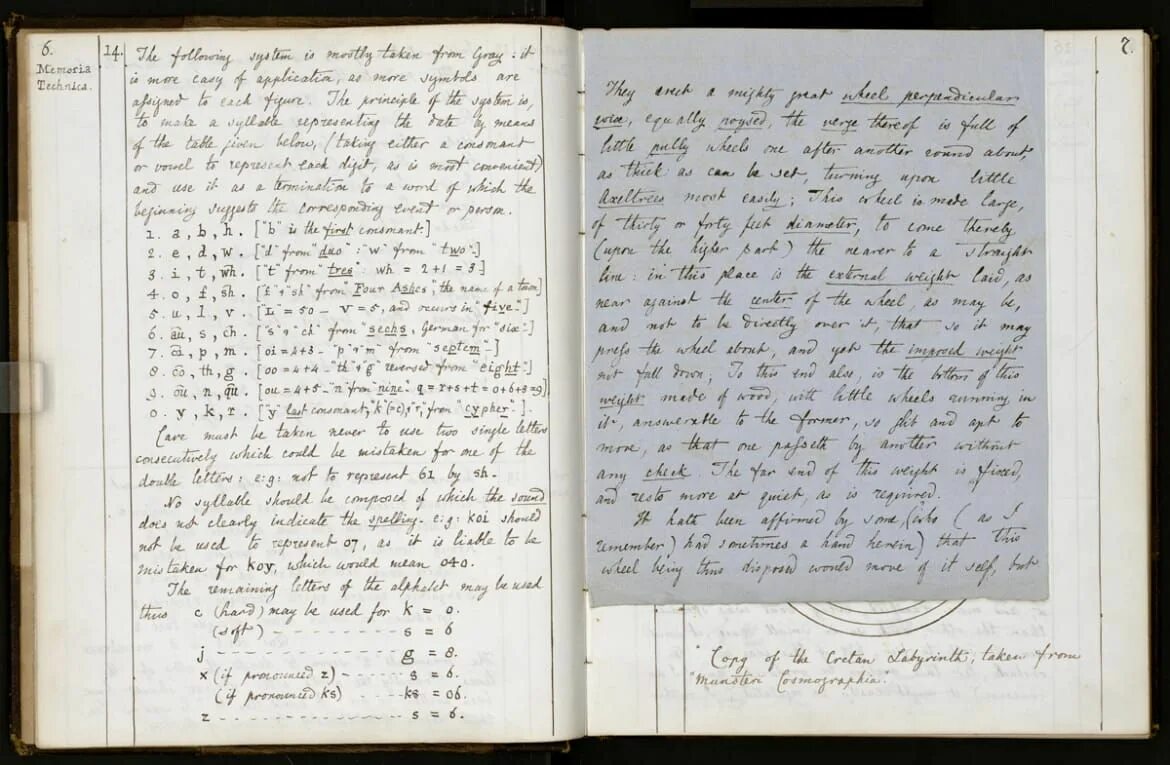 6.
Memoria
Technica.
14.
The following system is mostly taken from Gray: it
is more easy of application, as more symbols are
assigned to each figure. The principle of the system is,
to make a syllable representing the date by means
of the table given below, (taking either a consonant
or vowel to represent each digit, as is most convenient)
and use it as a termination to a word of which the
beginning suggests the corresponding event or person.
1. a, b, h. ["b" is the first consonant.]
2. e, d, w. ["d" from "duo": "w" from "two".]
3. i, t, wh. ["t" from "tres": wh = 2+1 = 3.]
4. o, f, sh. ["f" & "sh" from "Four Ashes", the name of a town]
5. u, l, v. [L = 50 — V = 5, and occurs in "five".]
6. au, s, ch. ["s" & "ch" from "sechs", German for "six".]
7. oi, p, m. [oi = 4+3 — "p" & "m" from "septem" —]
8. oo, th, g. [oo = 4+4 — "th" & "g" reversed from "eight".]
9. ou, n, qu. [ou = 4+5 — "n" from "nine". q = r+s+t = 0+6+3 = 9]
0. y, k, r. ["y" last consonant, "k" (=c) & "r", from "cypher".].
Care must be taken never to use two single letters
consecutively which could be mistaken for one of the
double letters: e:g: not to represent 61 by sh.
No syllable should be composed of which the sound
does not clearly indicate the spelling. e:g: koi should
not be used to represent 07, as it is liable to be
mistaken for koy, which would mean 040.
The remaining letters of the alphabet may be used
thus c (hard) may be used for k = 0.
(soft) - - - - - - - - - - s = 6
j - - - - - - - - - - g = 8.
x (if pronounced z) - - - - s = 6.
(if pronounced ks) ks = 06.
z - - - - - - - - - - s = 6.
7.
They erect a mighty great wheel perpendicular
wise, equally poysed, the verge thereof is full of
little pully wheels one after another round about,
as thick as can be set, turning upon little
Axeltrees most easily; This wheel is made large,
of thirty or forty feet diameter, to come thereby
(upon the higher part) the nearer to a straight
line: in this place is the external weight laid, as
near against the center of the wheel, as may be,
and not to be directly over it, that so it may
press the wheel about, and yet the imposed weight
not fall down; To this end also, is the bottom of this
weight made of wood, with little wheels running in
it, answerable to the former, so slit and apt to
move, as that one passeth by another without
any check. The far end of this weight is fixed,
and rests more at quiet, as is required.
It hath been affirmed by some, (who (as I
remember) had sometimes a hand herein) that this
wheel being thus disposed would move of it self, but
Copy of the Cretan Labyrinth, taken from
"Munsteri Cosmographia".